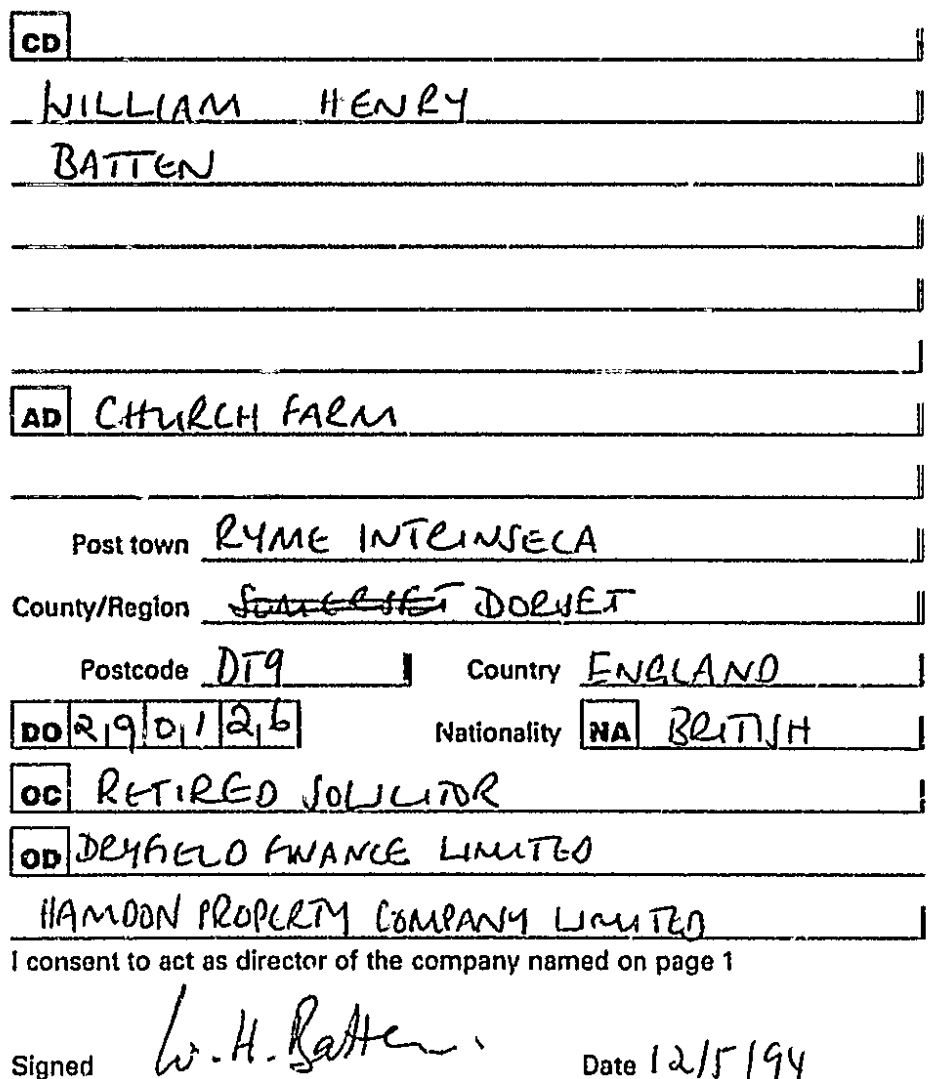 CD
WILLIAM HENRY
BATTEN
AD CHURCH FARM
Post town RYME INTRINSECA
County/Region SOMERSET DORSET
Postcode DT9 Country ENGLAND
DO 290126 Nationality NA BRITISH
OC RETIRED SOLICITOR
OD DRYFIELD FINANCE LIMITED
HAMDON PROPERTY COMPANY LIMITED
I consent to act as director of the company named on page 1
Signed W.H. Batten. Date 12/5/94